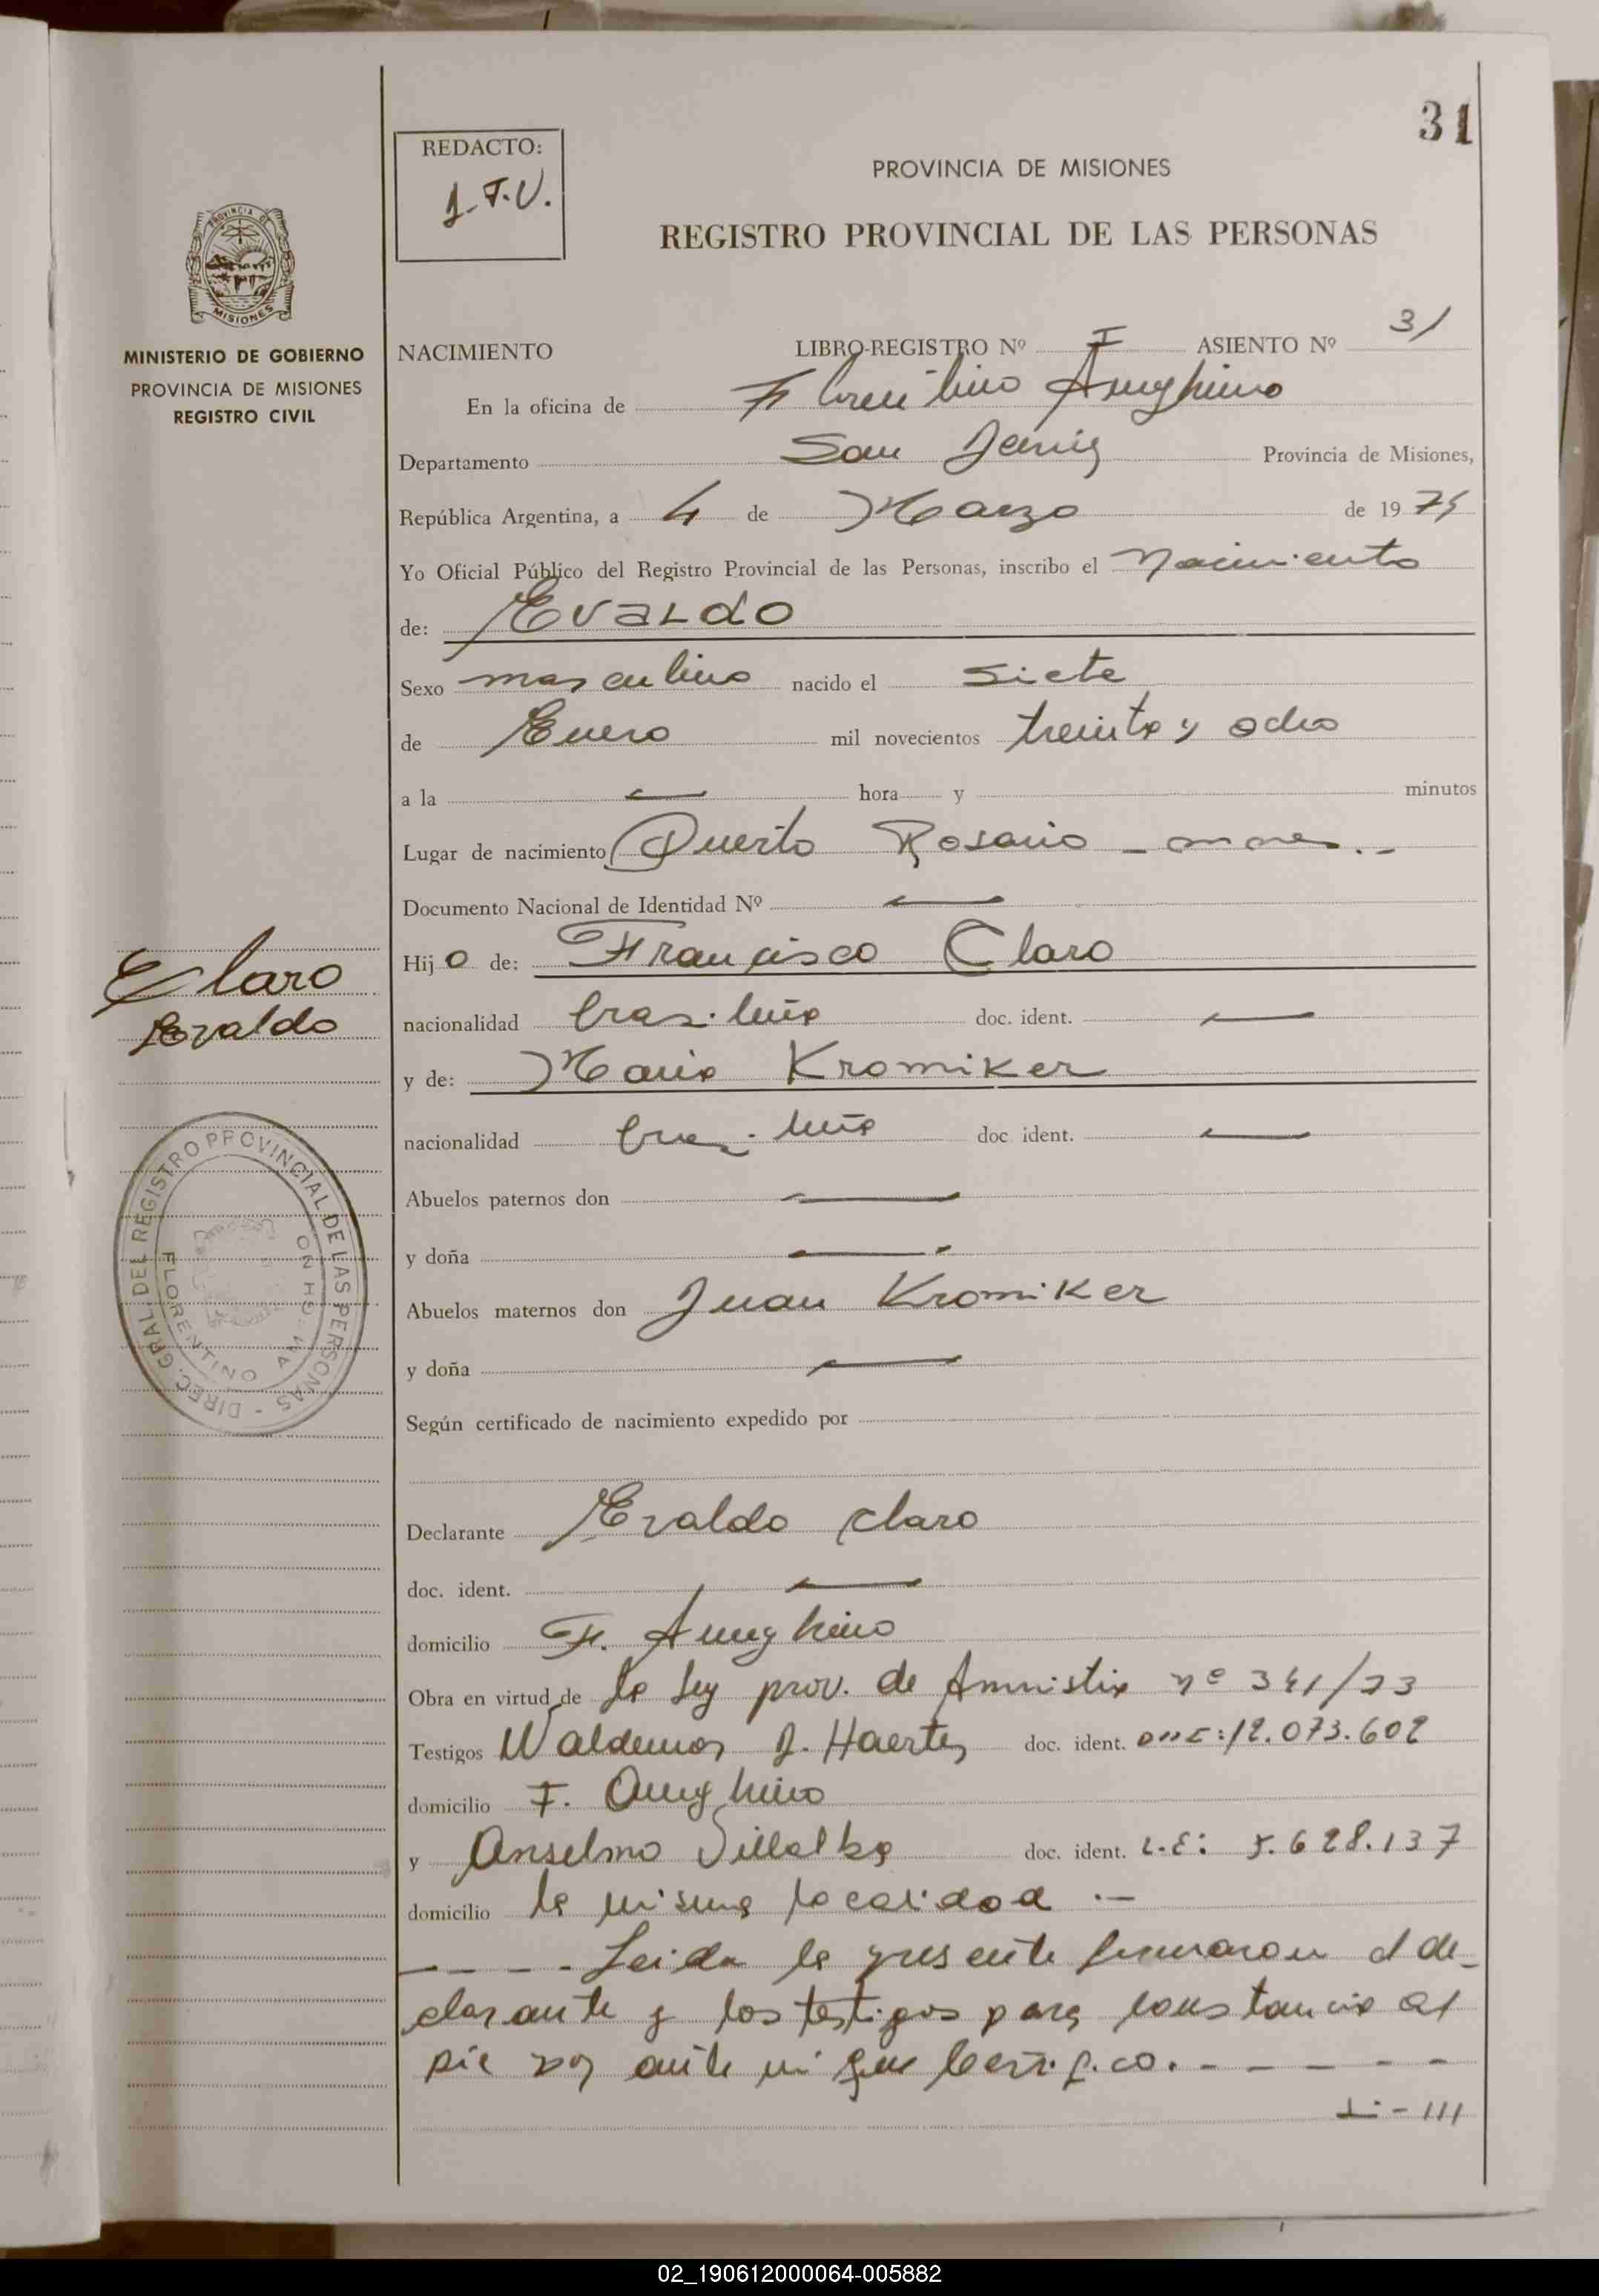 31
REDACTO:
J.F.V.
PROVINCIA DE MISIONES
REGISTRO PROVINCIAL DE LAS PERSONAS
PROVINCIA DE
MISIONES
MINISTERIO DE GOBIERNO
PROVINCIA DE MISIONES
REGISTRO CIVIL
NACIMIENTO LIBRO-REGISTRO Nº I ASIENTO Nº 31
En la oficina de Florentino Ameghino
Departamento San Javier Provincia de Misiones,
República Argentina, a 4 de Marzo de 1975
Yo Oficial Público del Registro Provincial de las Personas, inscribo el Nacimiento
de: EVALDO
Sexo masculino nacido el siete
de Enero mil novecientos treinta y ocho
a la — hora y minutos
Lugar de nacimiento Puerto Rosario -
Documento Nacional de Identidad Nº —
Claro
Evaldo
Hijo de: Francisco Claro
nacionalidad brasileña doc. ident. —
y de: Maria Kromiker
nacionalidad brasileña doc ident. —
DIREC. GRAL. DEL REGISTRO PROVINCIAL DE LAS PERSONAS -
FLORENTINO AMEGHINO
Abuelos paternos don —
y doña —
Abuelos maternos don Juan Kromiker
y doña —
Según certificado de nacimiento expedido por
Declarante Evaldo Claro
doc. ident. —
domicilio F. Ameghino
Obra en virtud de la Ley prov. de Amnistia nº 341/73
Testigos Waldemar J. Haerter doc. ident. DNI: 12.073.602
domicilio F. Ameghino
y Anselmo Villalba doc. ident. L.E: 5.628.137
domicilio la misma localidad .—
— - - - Leida la presente firmaron el de-
clarante y los testigos para constancia al
pie por ante mi que certifico. - - - - -
- 111
02_190612000064-005882